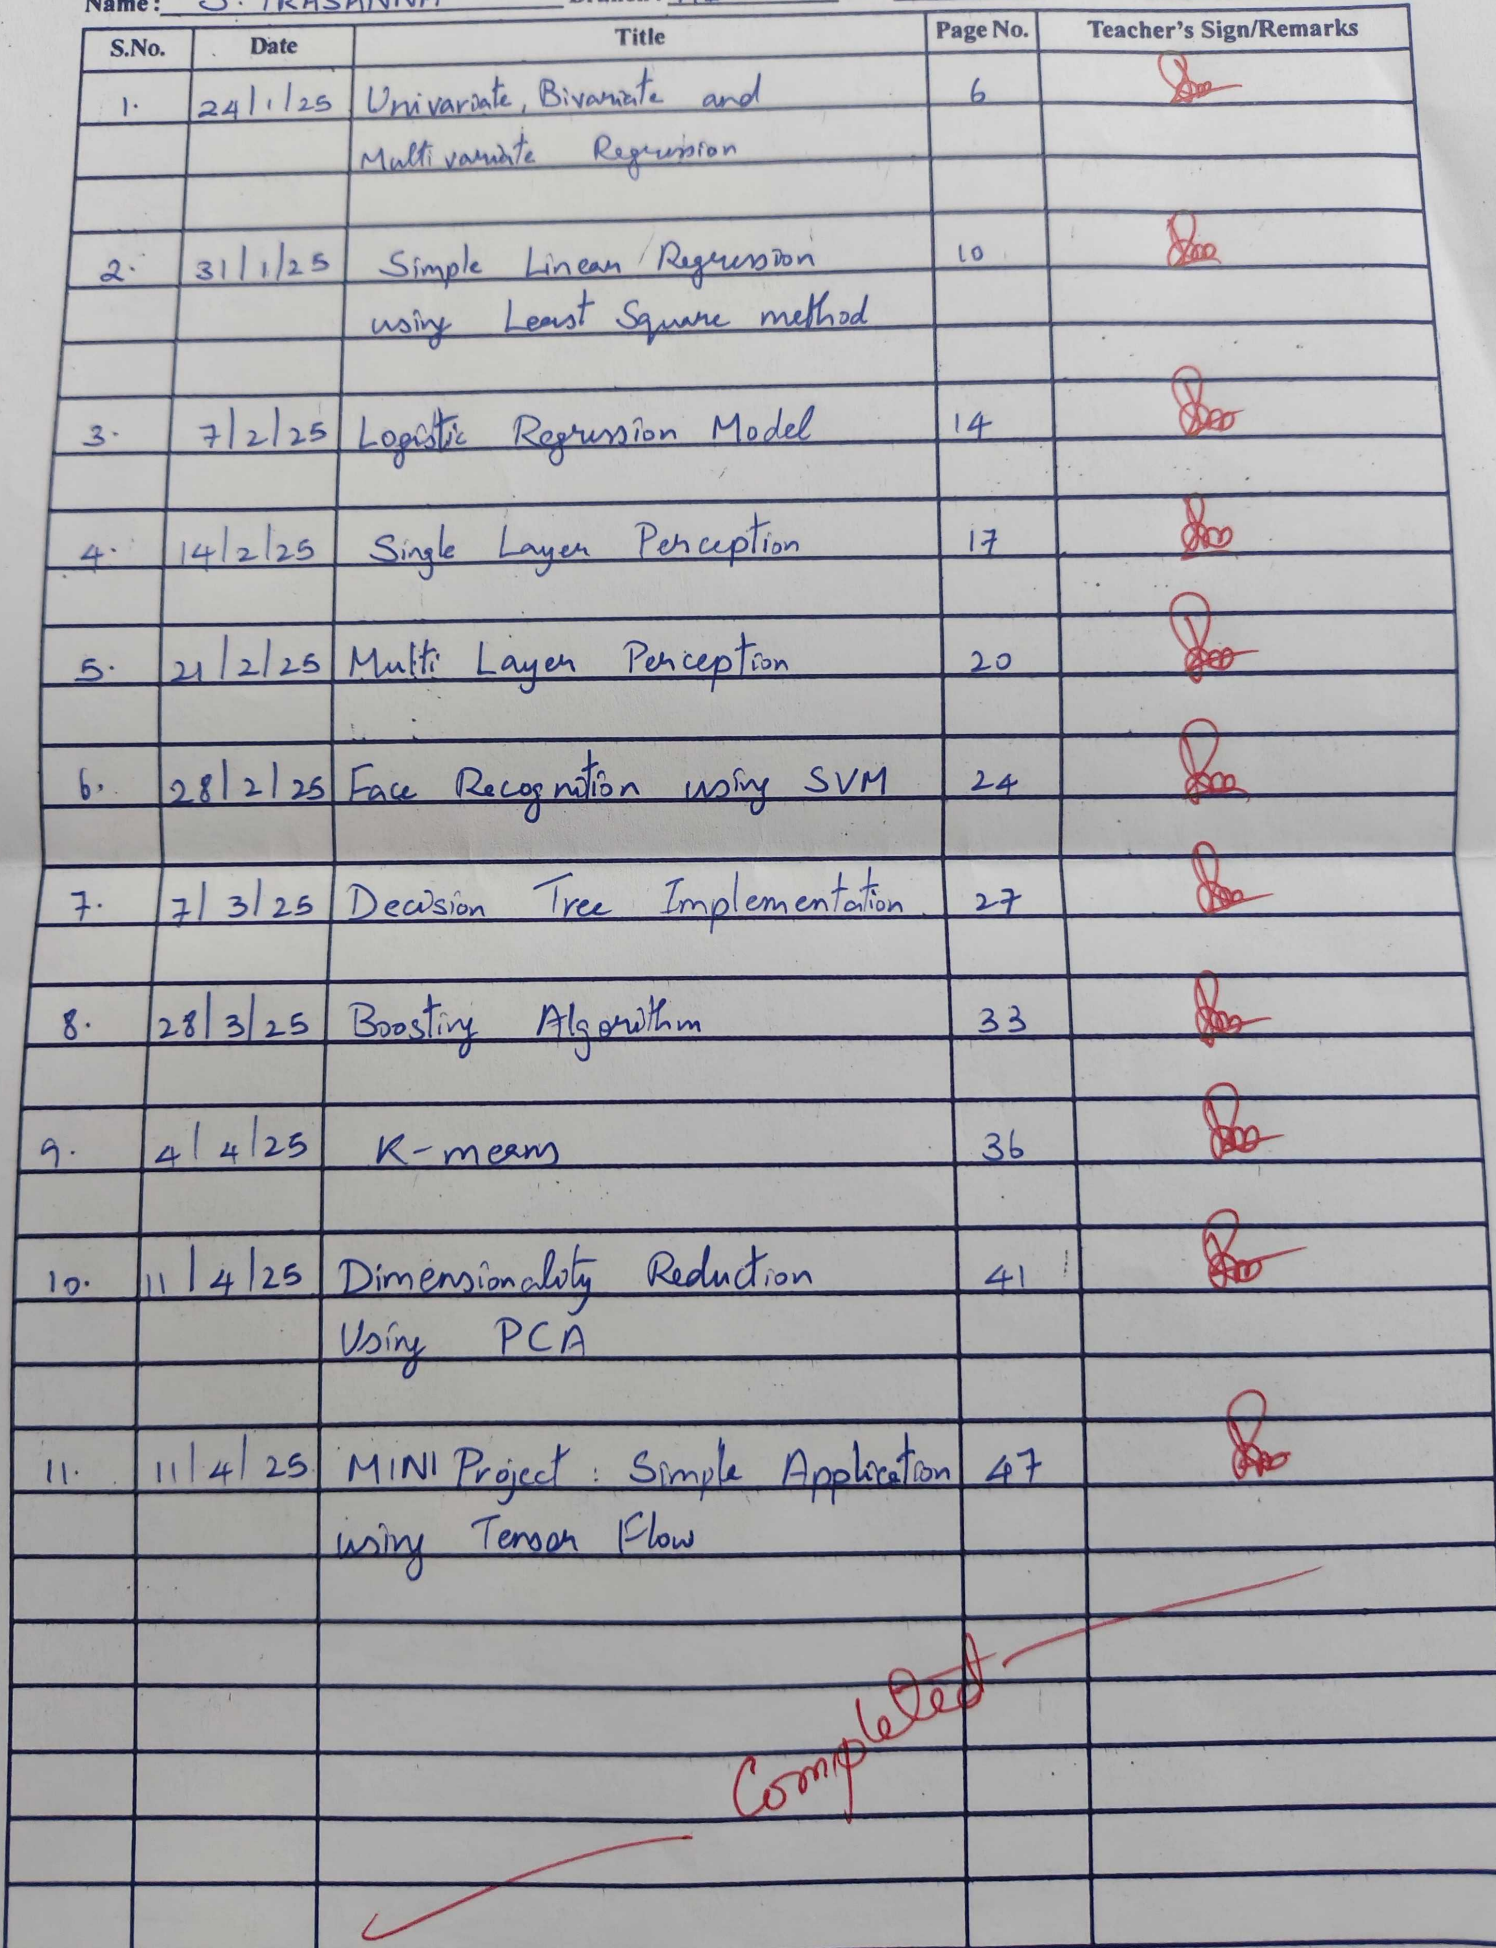 Name: S. PRASANNA
S.No. Date Title Page No. Teacher's Sign/Remarks
1. 24/1/25 Univariate, Bivariate and 6
Multivariate Regression
2. 31/1/25 Simple Linear Regression 10
using Least Square method
3. 7/2/25 Logistic Regression Model 14
4. 14/2/25 Single Layer Perception 17
5. 21/2/25 Multi Layer Perception 20
6. 28/2/25 Face Recognition using SVM 24
7. 7/3/25 Decision Tree Implementation 27
8. 28/3/25 Boosting Algorithm 33
9. 4/4/25 K-means 36
10. 11/4/25 Dimensionality Reduction 41
Using PCA
11. 11/4/25 MINI Project: Simple Application 47
using Tensor Flow
Completed